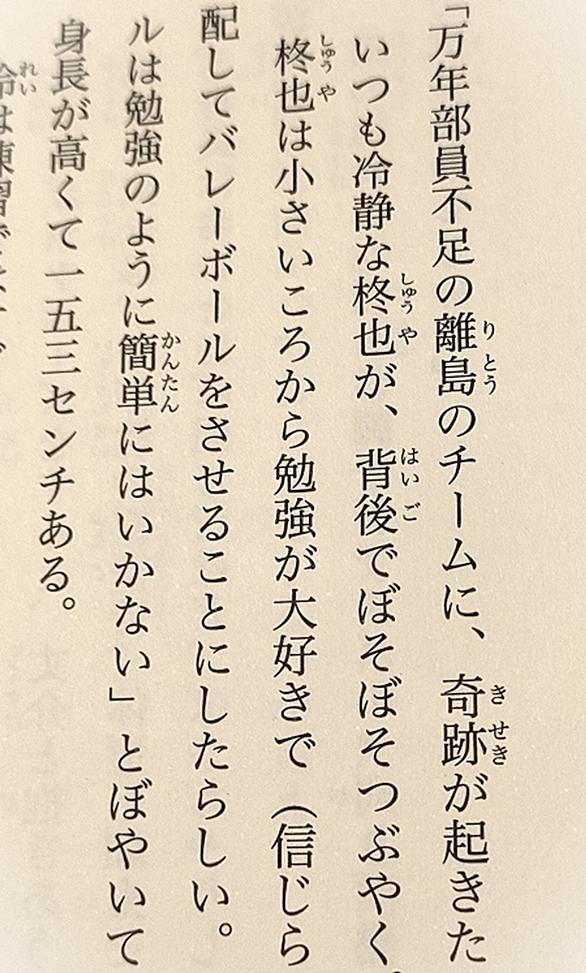 「万年部員不足の離島のチームに、奇跡が起きた
いつも冷静な柊也が、背後でぼそぼそつぶやく。
柊也は小さいころから勉強が大好きで（信じら
配してバレーボールをさせることにしたらしい。
ルは勉強のように簡単にはいかない」とぼやいて
身長が高くて一五三センチある。